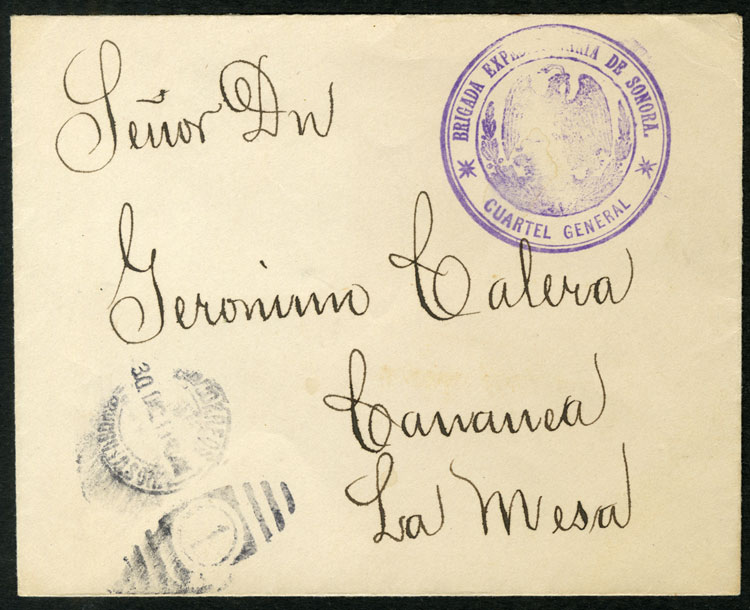 BRIGADA EXPEDICIONARIA DE SONORA.
CUARTEL GENERAL
Señor Dn
Geronimo Calera
Cananea
La Mesa
30
1